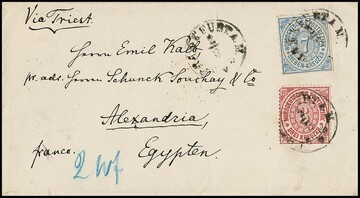 Via Triest.
Herrn Emil Kalb
pr. adr. Herrn Schunck Souchay & Co
Alexandria
franco. Egypten.
2 Wf
FRANKFURT A. M.